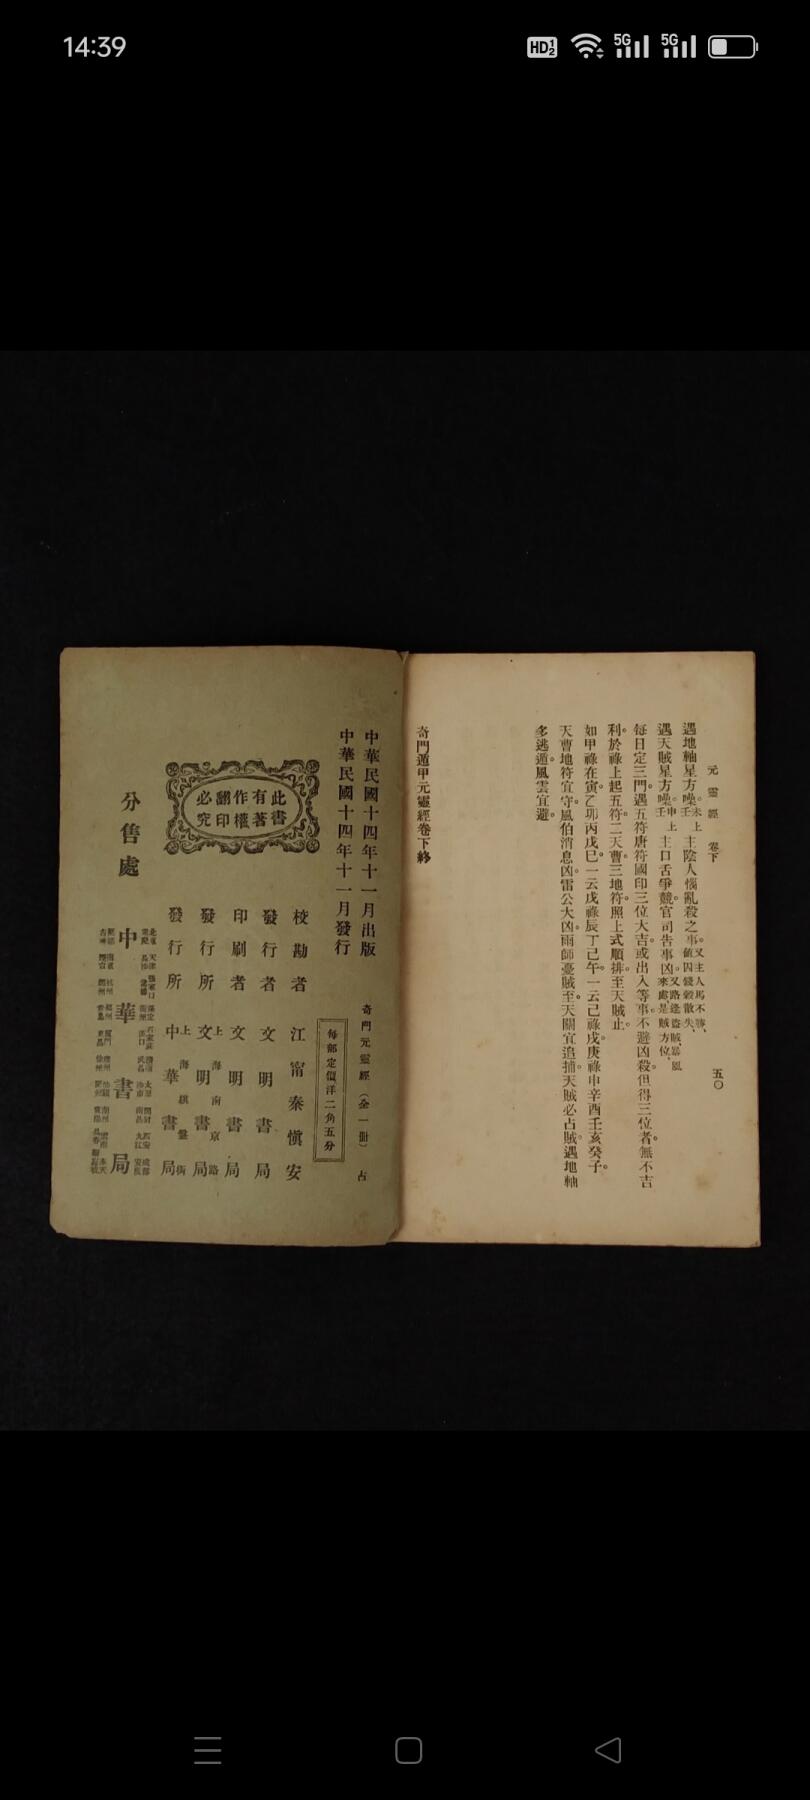 14:39
HD
5G
5G
元靈經 卷下 五〇
遇地軸星方噪未上壬主陰人惱亂殺之事又主人馬不
遇天賊星方噪申上壬主口舌爭競官司告事凶又路逢盜賊暴風來處是賊方位
每日定三門遇五符唐符國印三位大吉或出入等事不避凶殺但得三位者無不吉
利於祿上起五符二天曹三地符照上式順排至天賊止
如甲祿在寅乙卯丙戊巳一云戊祿辰丁己午一云己祿戌庚祿申辛酉壬亥癸子
天曹地符宜守風伯消息凶雷公大凶雨師憂賊至天關宜追捕天賊必占賊遇地軸
多逃遁風雲宜避
奇門遁甲元靈經卷下終
中華民國十四年十一月出版
中華民國十四年十一月發行
奇門元靈經(全一冊)
每部定價洋二角五分
此書有著作權翻印必究
校勘者 江甯秦愼安
發行者 文明書局
印刷者 文明書局
發行所 上海南京路 文明書局
發行所 上海棋盤街 中華書局
分售處 中華書局